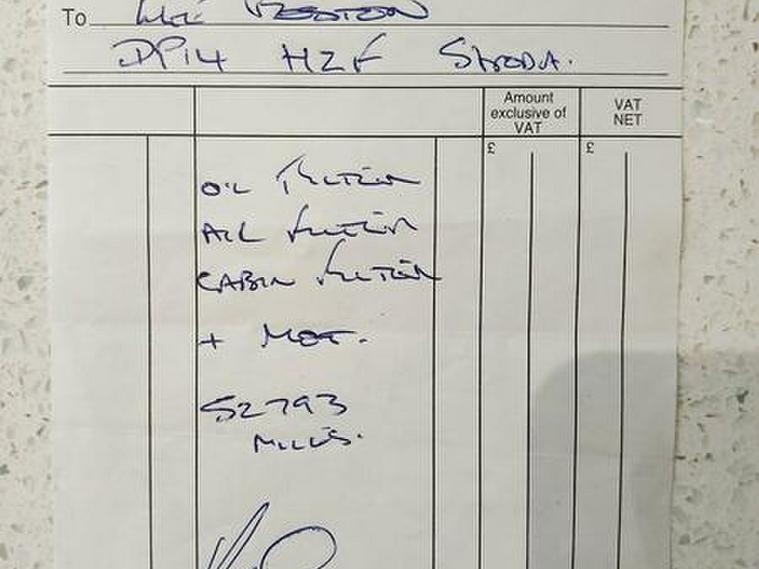 To
DP14 HZF SKODA.
Amount
exclusive of
VAT
VAT
NET
£ £
OIL FILTER
AIR FILTER
CABIN FILTER
+ MOT.
52793
MILES.